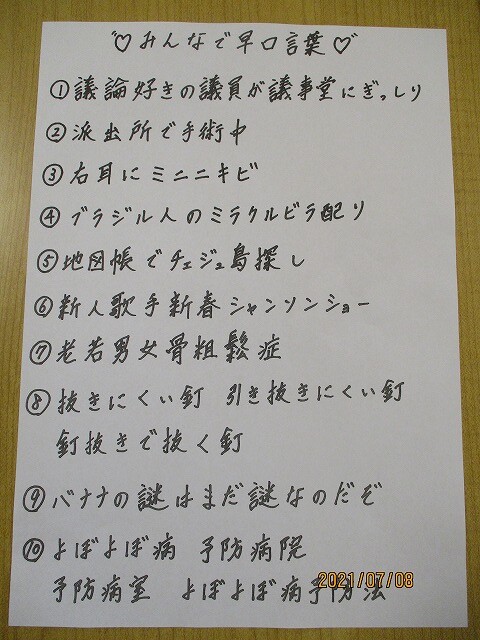 ♡みんなで早口言葉♡
①議論好きの議員が議事堂にぎっしり
②派出所で手術中
③右耳にミニニキビ
④ブラジル人のミラクルビラ配り
⑤地図帳でチェジュ島探し
⑥新人歌手新春シャンソンショー
⑦老若男女骨粗鬆症
⑧抜きにくい釘 引き抜きにくい釘
釘抜きで抜く釘
⑨バナナの謎はまだ謎なのだぞ
⑩よぼよぼ病 予防病院
予防病室 よぼよぼ病予防法
2021/07/08